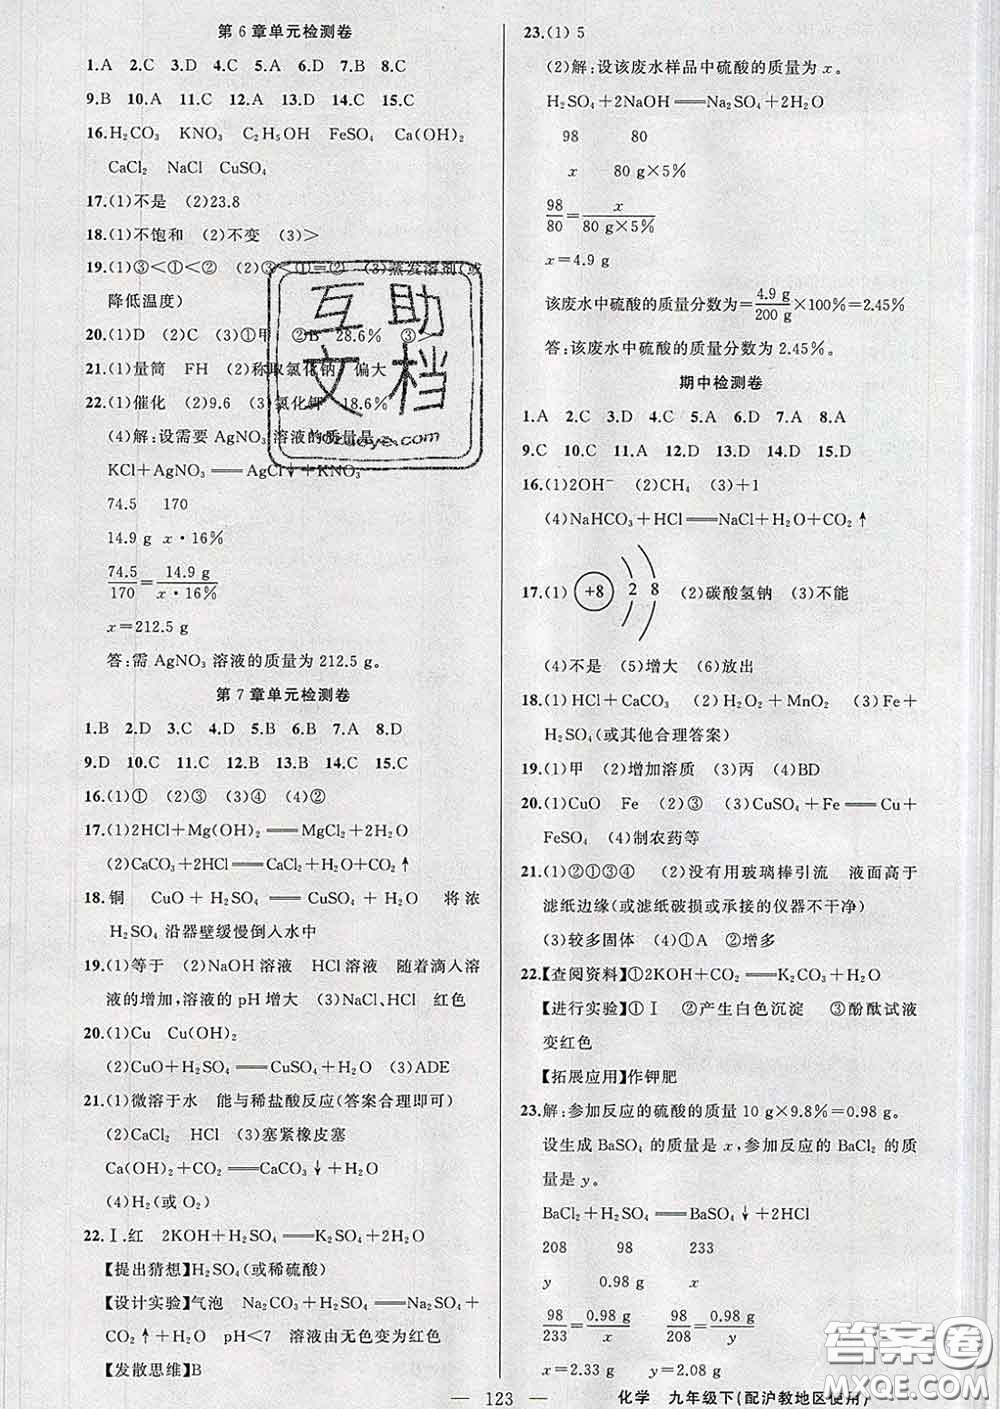 第6章单元检测卷
1.A 2.C 3.D 4.C 5.A 6.D 7.D 8.C
9.B 10.A 11.C 12.A 13.D 14.C 15.C
16.H₂CO₃ KNO₃ C₂H₅OH FeSO₄ Ca(OH)₂
CaCl₂ NaCl CuSO₄
17.(1)不是 (2)23.8
18.(1)不饱和 (2)不变 (3)>
19.(1)③<①<② (2)③<①=② (3)蒸发溶剂(或
降低温度)
20.(1)D (2)C (3)①甲 ②B 28.6% ③
21.(1)量筒 FH (2)称取氯化钠 偏大
22.(1)催化 (2)9.6 (3)氯化钾 18.6%
(4)解:设需要 AgNO₃ 溶液的质量是
KCl+AgNO₃══AgCl↓+KNO₃
74.5 170
14.9 g x·16%
74.5/170=14.9 g/x·16%
x=212.5 g
答:需 AgNO₃ 溶液的质量为 212.5 g。
第7章单元检测卷
1.B 2.D 3.C 4.D 5.B 6.B 7.A 8.D
9.D 10.C 11.C 12.B 13.B 14.C 15.C
16.(1)① (2)③ (3)④ (4)②
17.(1)2HCl+Mg(OH)₂══MgCl₂+2H₂O
(2)CaCO₃+2HCl══CaCl₂+H₂O+CO₂↑
18.铜 CuO+H₂SO₄══CuSO₄+H₂O 将浓
H₂SO₄ 沿器壁缓慢倒入水中
19.(1)等于 (2)NaOH溶液 HCl溶液 随着滴入溶
液的增加,溶液的 pH 增大 (3)NaCl、HCl 红色
20.(1)Cu Cu(OH)₂
(2)CuO+H₂SO₄══CuSO₄+H₂O (3)ADE
21.(1)微溶于水 能与稀盐酸反应(答案合理即可)
(2)CaCl₂ HCl (3)塞紧橡皮塞
Ca(OH)₂+CO₂══CaCO₃↓+H₂O
(4)H₂(或 O₂)
22.Ⅰ.红 2KOH+H₂SO₄══K₂SO₄+2H₂O
【提出猜想】H₂SO₄(或稀硫酸)
【设计实验】气泡 Na₂CO₃+H₂SO₄══Na₂SO₄+
CO₂↑+H₂O pH<7 溶液由无色变为红色
【发散思维】B
23.(1)5
(2)解:设该废水样品中硫酸的质量为 x。
H₂SO₄+2NaOH══Na₂SO₄+2H₂O
98 80
x 80 g×5%
98/80=x/80 g×5%
x=4.9 g
该废水中硫酸的质量分数为=4.9 g/200 g×100%=2.45%
答:该废水中硫酸的质量分数为 2.45%。
期中检测卷
1.A 2.C 3.D 4.C 5.A 6.D 7.A 8.A
9.C 10.C 11.A 12.D 13.D 14.D 15.D
16.(1)2OH⁻ (2)CH₄ (3)+1
(4)NaHCO₃+HCl══NaCl+H₂O+CO₂↑
17.(1) +8 2 8 (2)碳酸氢钠 (3)不能
(4)不是 (5)增大 (6)放出
18.(1)HCl+CaCO₃ (2)H₂O₂+MnO₂ (3)Fe+
H₂SO₄(或其他合理答案)
19.(1)甲 (2)增加溶质 (3)丙 (4)BD
20.(1)CuO Fe (2)③ (3)CuSO₄+Fe══Cu+
FeSO₄ (4)制农药等
21.(1)②①③④ (2)没有用玻璃棒引流 液面高于
滤纸边缘(或滤纸破损或承接的仪器不干净)
(3)较多固体 (4)①A ②增多
22.【查阅资料】①2KOH+CO₂══K₂CO₃+H₂O
【进行实验】①Ⅰ ②产生白色沉淀 ③酚酞试液
变红色
【拓展应用】作钾肥
23.解:参加反应的硫酸的质量 10 g×9.8%=0.98 g。
设生成 BaSO₄ 的质量是 x,参加反应的 BaCl₂ 的质
量是 y。
BaCl₂+H₂SO₄══BaSO₄↓+2HCl
208 98 233
y 0.98 g x
98/233=0.98 g/x 98/208=0.98 g/y
x=2.33 g y=2.08 g
— 123 — 化学 九年级下(配沪教地区使用)
互助
文档
答案圈
MXQE.COM